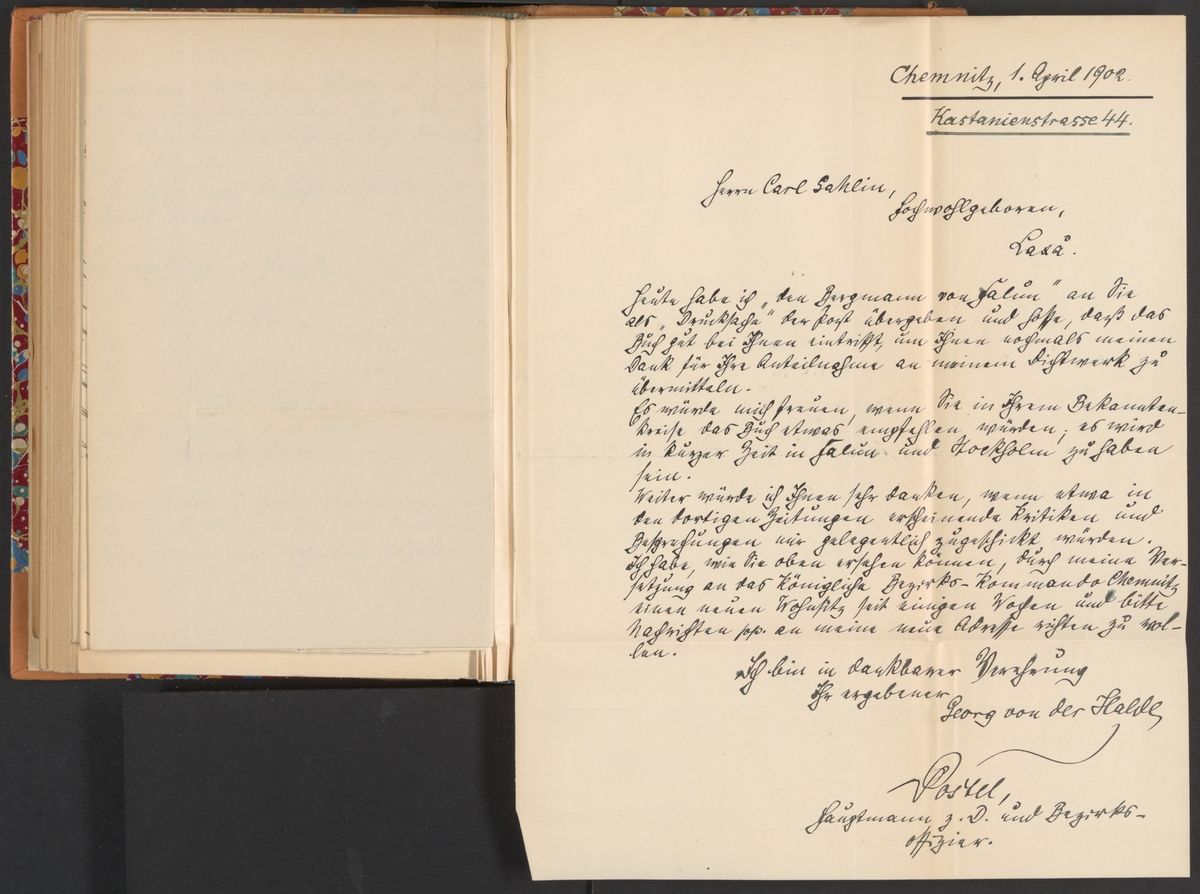 Chemnitz, 1. April 1902.
Kastanienstrasse 44.
Herrn Carl Sahlin,
Hochwohlgeboren,
Laxå.
Heute habe ich „den Bergmann von Falun" an Sie
als „Drucksache" der Post übergeben und hoffe, daß das
Buch gut bei Ihnen eintrifft, um Ihnen nochmals meinen
Dank für Ihre Anteilnahme an meinem Dichtwerk zu
übermitteln.
Es würde mich freuen, wenn Sie in Ihrem Bekannten-
kreise das Buch etwas empfehlen würden; es wird
in kurzer Zeit in Falun und Stockholm zu haben
sein.
Weiter würde ich Ihnen sehr danken, wenn etwa in
den dortigen Zeitungen erscheinende Kritiken und
Besprechungen mir gelegentlich zugeschickt würden.
Ich habe, wie Sie oben ersehen können, durch meine Ver-
setzung an das Königliche Bezirks-Kommando Chemnitz
einen neuen Wohnsitz seit einigen Wochen und bitte
Nachrichten pp. an meine neue Adresse richten zu wol-
len.
Ich bin in dankbarer Verehrung
Ihr ergebener
Georg von der Halde,
Postel,
Hauptmann z. D. und Bezirks-
offizier.